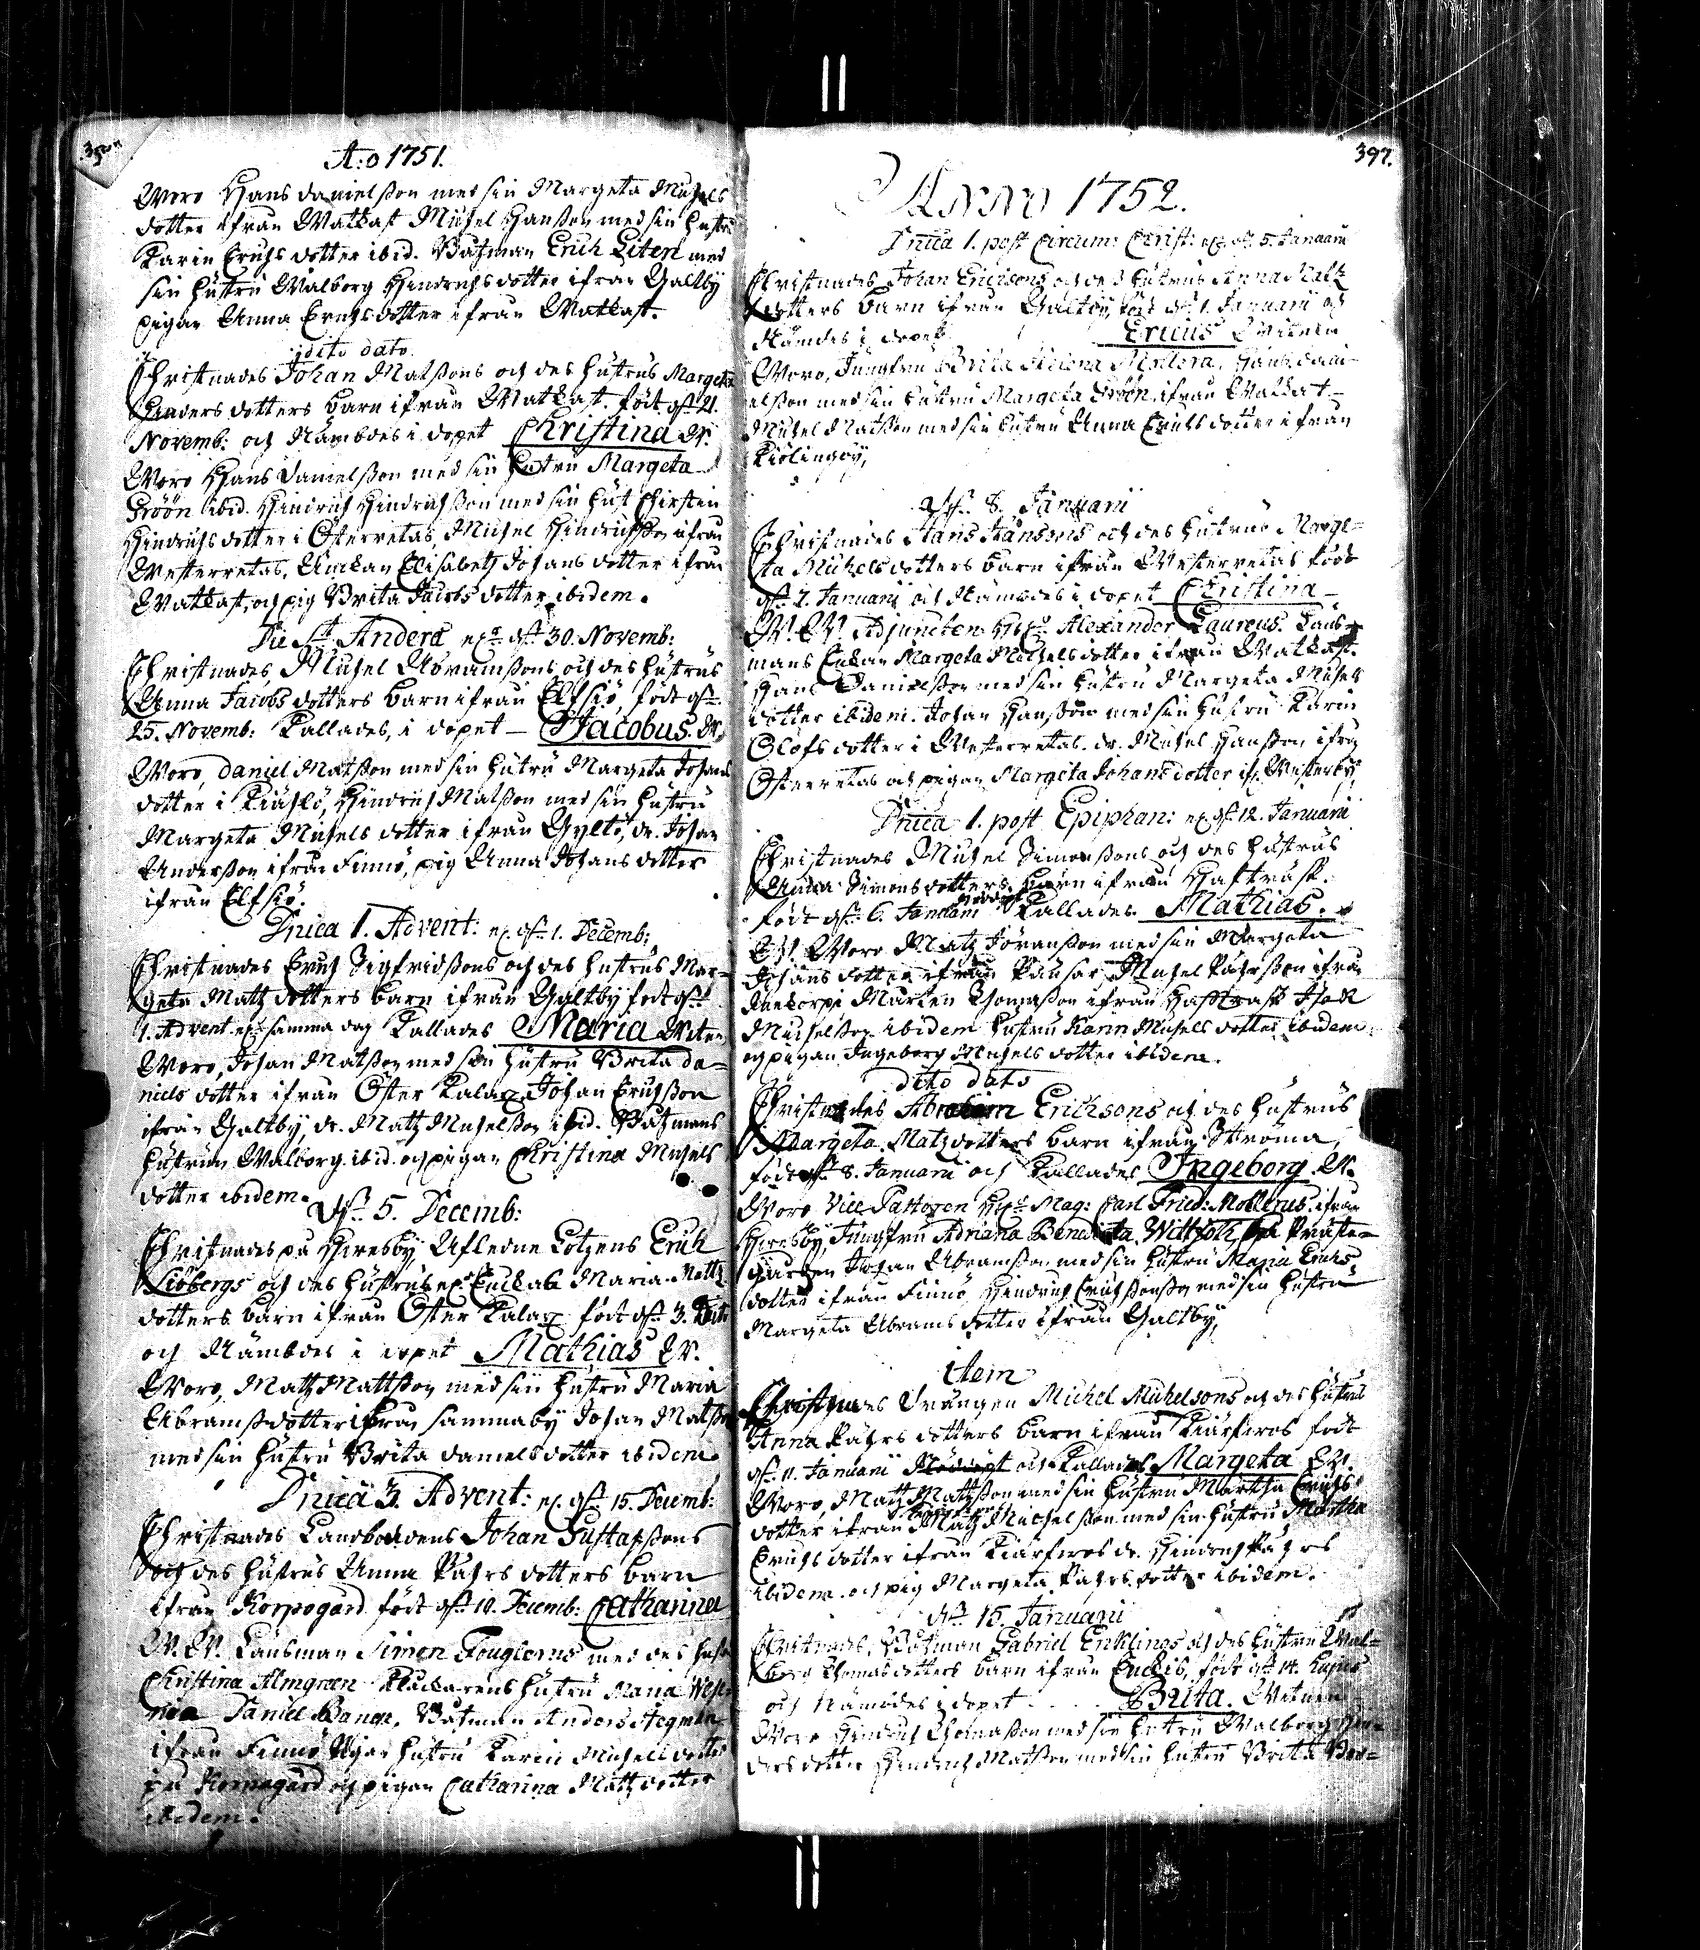 A:o 1751.
Woro Hans Danielsson med sin Margeta Michels
dotter ifran Wattkast Michel Hansson med sin hustru
Karin Erichs dotter ibid. Båtzman Erich Liten med
sin hustru Walborg Hindrichs dotter ifran Galtby
pigan Anna Erichs dotter ifran Wattkast.
dito dato
Christnades Johan Matssons och des hustrus Margeta
Anders dotters barn ifran Wattkast, födt d: 21.
Novemb: och Nämbdes i dopet Christina W.
Woro Hans Danielsson med sin hustru Margeta
Gröön ibid. Hindrich Hindrichsson med sin hust Christin
Hindrichs dotter i Österretas, Michel Hindrichsson ifran
Westerretas, Enckan Elisabeth Johans dotter ifran
Wattkast, och pig Brita Jacobs dotter ibidem.
Die St Andreæ d: 30. Novemb:
Christnades, Michel Abramssons och des hustrus
Anna Jacobs dotters barn ifran Elfsiö, födt d:
25. Novemb: Kallades, i dopet — Jacobus. W.
Woro, Daniel Matsson med sin hustru Margeta Johans
dotter i Kiählö, Hindrich Matsson med sin hustru
Margeta Michels dotter ifran Gyltö, dr. Johan
Andersson ifran Finnö, pig Anna Johans dotter
ifran Elfsiö.
Dnica 1. Advent: d: 1. Decemb:
Christnades Erich Sigfridssons och des hustrus Mar-
geta Matz dotters barn ifran Galtby födt d:
1. Advent samma dag Kallades Maria Witnen
Woro, Johan Matsson med sin hustru Brita Da-
niels dotter ifran Öster Kalax, Johan Erichsson
ifran Galtby, dr. Matz Michelsson ibid. Båtzmans
hustrun Walborg ibid. och pigan Christina Michels
dotter ibidem.
D: 5. Decemb:
Christnades på Hiresby, Afledne Lotzens Erich
Siöbergs och des hustrus Enckas Maria Matz
dotters barn ifran Öster Kalax födt d: 3.
och Nämbdes i dopet Mathias W.
Woro, Matz Mattsson med sin hustru Maria
Abramsdotter ifran sammaby Johan Matsson
med sin hustru Brita Daniels dotter ibidem
Dnica 3. Advent: d: 15. Decemb:
Christnades Landbondens Johan Gustafssons
och des hustrus Anna Pährs dotters barn
ifran Korpogård födt d: 10. Decemb: Catharina
W. W. Länsman Simon Fouglerus med des hust
Christina Almgreen Klockarens hustru Maria
Daniel Bange, Båtzman Anders Hegman
ifran Finnö hustru Karin Michels dotter
på Kornogård och pigan Catharina Matz dotter
ibidem.
397.
Anno 1752.
Dnica 1. post Circum: Christi d: 5. Januarii
Christnades Johan Ericksons och des hustrus Anna Matz
dotters barn ifran Galtby, födt d: 1. Januarii och
Nämdes i dopet Ericus Witnen
Woro, Jungfru Brita Helena, Hans Dani-
elsson med sin hustru Margeta Gröön, ifran Wattkast
Michel Matsson med sin hustru Anna Erichs dotter ifran
Kiölingöy,
D: 8. Januarii
Christnades Hans Hanssons och des hustrus Marge-
ta Michels dotters barn ifran Westerretas födt
d: 7. Januarii och Nämdes i dopet Christina
W. W. Adjuncten H:r Alexander Laureus. Läns-
mans Enkan Margeta Michelsdotter ifran Wattkast.
Hans Danielsson med sin hustru Margeta Michels
dotter ibidem. Johan Hansson med sin hustru Karin
Olofs dotter i Westerretas. dr. Michel Hansson ifrån
Österretas och pigan Margeta Johans dotter if. Westerby,
Dnica 1. post Epiphan: d: 12. Januarii
Christnades Michel Simonssons och des hustrus
Anna Simonsdotters barn ifran Haftråsk.
födt d: 6. Januarii Kallades Mathias.
W. Woro Matz Jöransson med sin Margeta
Johans dotter ifran Michel Pährsson ifran
Mårten Thomasson ifran Haftråsk
Michelsson ibidem hustru Karin Michels dotter ibidem
och pigan Ingeborg Michels dotter ibidem.
dito dato
Christnades Abraham Ericksons och des hustrus
Margeta Matzdotters barn ifran Ströma,
födt d: 8. Januarii och Kallades Ingeborg. W.
Woro Vice Pastoren H:r Mag: Carl Fried: Mollerus. ifran
Hiresby, Jungfru Adriana Benedicta Wittfoth på Präste-
gården Johan Abramsson med sin hustru Maria Erichs
dotter ifran Finnö Hindrich Erichsson med sin hustru
Margeta Abrams dotter ifran Galtby,
item
Christnades Drängen Michel Michelsons och des hustrus
Anna Pährs dotters barn ifran Kiärferos födt
d: 11. Januarii och Kallades Margeta W.
Woro, Matz Mattsson med sin hustru Martha Erichs
dotter ifran Matz Michelsson med sin hustru Martha
Erichs dotter ifran Kiärferos dr. Hindrich Pährs
ibidem. och pig Margeta Pährs dotter ibidem.
d: 15. Januarii
Christnades, Båtzman Gabriel Enklings och des hustru Wal-
borg Thomas dotters barn ifran födt d: 14. hujus
och Nämbdes i dopet Brita. Witnen
Woro Hindrich Thomasson med sin hustru Walborg
dotter Hindrich Matsson med sin hustru Brita